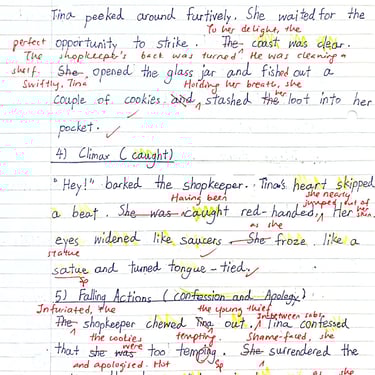 Tina peeked around furtively. She waited for the
To her delight, the
perfect opportunity to strike. The coast was clear.
The shopkeeper's back was turned. He was cleaning a
shelf. She opened the glass jar and fished out a
Swiftly, Tina Holding her breath, she
couple of cookies and stashed the her loot into her
pocket.
4) Climax (caught)
"Hey!" barked the shopkeeper. Tina's heart skipped
Having been she nearly jumped out of
a beat. She was caught red-handed. Her skin.
as she
eyes widened like saucers. She froze like a
statue
satue and tuned tongue-tied.
sp
5) Falling Actions (confession and Apology)
Infuriated, the the young thief Inbetween sobs,
The shopkeeper chewed Tina out. Tina confessed
the cookies were tempting. Shame-faced, she
that she was too temping. She surrendered the
and apologised. Hot sp